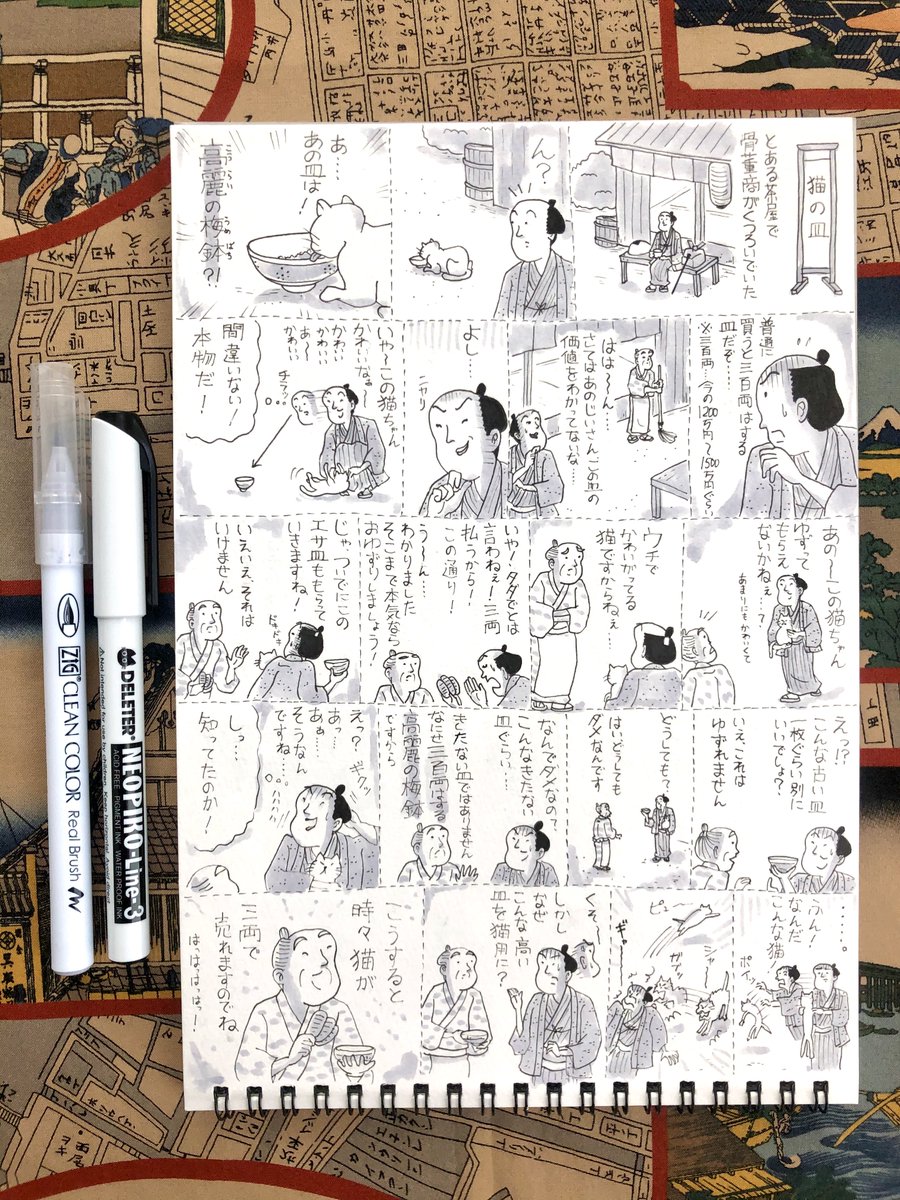 猫の皿
とある茶屋で
骨董商がくつろいでいた
ん?
あ…
あの皿は!
高麗の梅鉢?!
こうらい
うめばち
普通に
買うと三百両はする
皿だぞ…
※三百両…今の1200万円~1500万円ぐらい
はは~ん…
さてはあのじいさんこの皿の
価値をわかってないな…
よし…
ニヤリ
いや~この猫ちゃん
かわいいなぁ~
かわいい
かわいい
あ~
かわいい
チラッ
間違いない!
本物だ!
あの~この猫ちゃん
ゆずって
もらえ
ないかねぇ…
あまりにもかわいくて
って
ウチで
かわいがってる
猫ですからねぇ…
いや!タダでとは
言わねぇ!三両
払うから!
この通り!
う~ん…
わかりました
そこまで本気なら
おゆずりしましょう!
じゃ、ついでにこの
エサ皿ももらって
いきますね!
ドキドキ
いえいえ、それは
いけません
えっ!?
こんな古い皿
一枚ぐらい別に
いいでしょ?
いえ、これは
ゆずれません
どうしても?
はい、どうしても
ダメなんです
なんでダメなのって
こんなきたない
皿ぐらい…
きたない皿ではありません
なにせ三百両はする
高麗の梅鉢
ですから
えっ?
あっ…
あぁ…
そうなん
ですね…
ギクッ
しっ…
知ってたのか!
……。
ふん!
なんだ
こんな猫
ポイッ
シャー
ガリッ
ピュー
ギャ
くそ~
しかし
なぜ
こんな高い
皿を猫用に?
こうすると
時々猫が
三両で
売れますのでね
はっはっはっはっ!
ZIG CLEAN COLOR Real Brush
DELETER NEOPIKO-Line-3
ACID FREE・PIGMENT INK・WATER PROOF INK